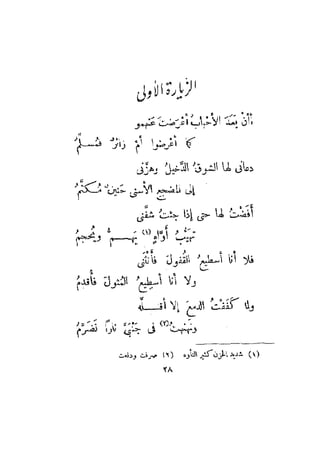 الزيارة الأولى
أإن بَعُدَ الأحبابُ أعرضتَ عنهمو
كما أعرضوا أم زائرٌ فمُسلِّمُ
دعانى لها الشوقُ الدَّخيلُ وهزَّنى
إلى المضجعِ الأسنى حَنينٌ مُكتَّمُ
أفَضْتُ لها حتى إذا جئتُ شفَّنى
تَهيُّبُ أوَّاهٍ (١) يَهُمُّ ويُحجِمُ
فلا أنا أسطيعُ القُفولَ فأنثنى
ولا أنا أسطيعُ المُثولَ فأُقدِمُ
ولما كَفَفْتُ الدمعَ إلا أقلَّه
ونهنهتُ (٢) فى جَنْبَىَّ نارًا تَضَرَّمُ
(١) شديد الحزن كثير التأوه (٢) صرفت ودفعت
٣٨